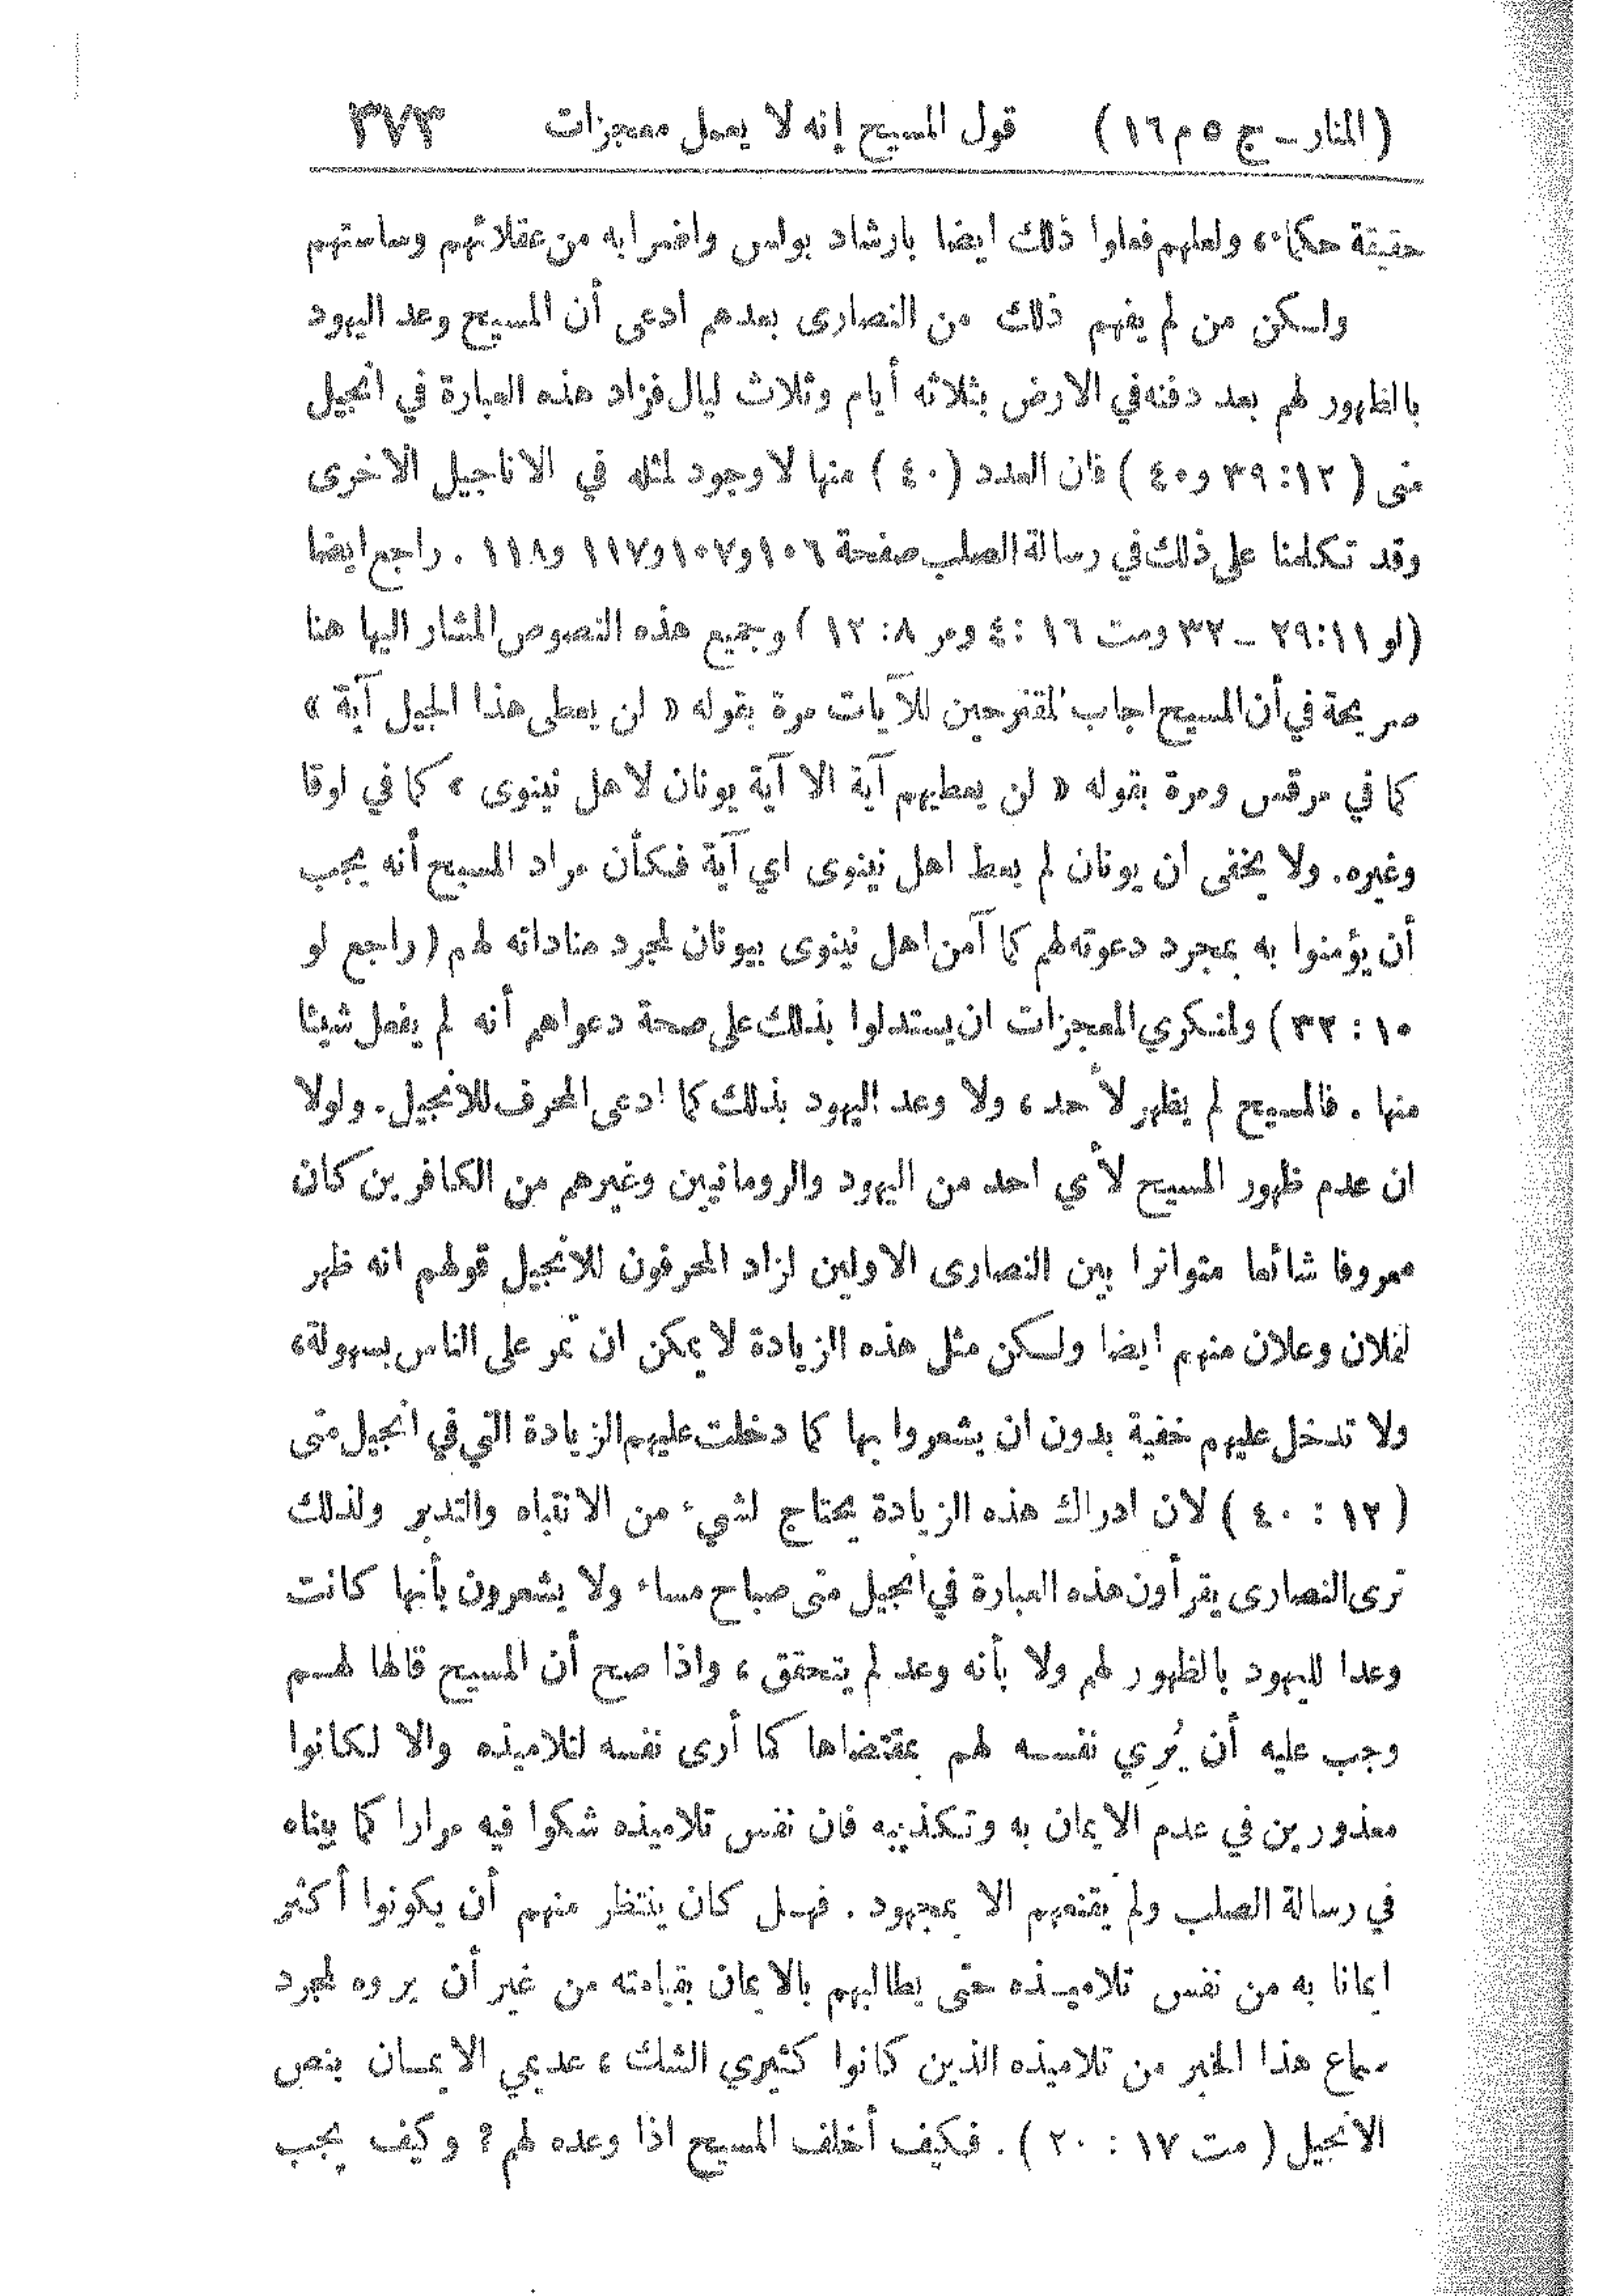 (المنار – ج ٥ م ١٦) قول المسيح إنه لا يعمل معجزات ٣٧٣
حقيقة حكماء، ولعلهم فعلوا ذلك ايضا بارشاد بولس واضرابه من عقلائهم وساستهم
ولكن من لم يفهم ذلك من النصارى بعدهم ادعى أن المسيح وعد اليهود
بالظهور لهم بعد دفنه في الارض بثلاثه أيام وثلاث ليال فزاد هذه العبارة في انجيل
متى (١٢ : ٣٩ و ٤٠) فان العدد (٤٠) منها لا وجود لمثله في الاناجيل الاخرى
وقد تكلمنا على ذلك في رسالة الصلب صفحة ١٠٦ و١٠٧ و١١٧ و١١٨ . راجع ايضا
(لو ١١ : ٢٩ – ٣٢ ومت ١٦ : ٤ ومر ٨ : ١٢) وجميع هذه النصوص المشار اليها هنا
صريحة في أن المسيح اجاب المقترحين للآيات مرة بقوله « لن يعطى هذا الجيل آية »
كما في مرقس ومرة بقوله « لن يعطيهم آية الا آية يونان لاهل نينوى » كما في لوقا
وغيره. ولا يخفى ان يونان لم يعط اهل نينوى اي آية فكأن مراد المسيح أنه يجب
أن يؤمنوا به بمجرد دعوته لهم كما آمن اهل نينوى بيونان لمجرد مناداته لهم (راجع لو
١٠ : ٣٢) ولمنكري المعجزات ان يستدلوا بذلك على صحة دعواهم أنه لم يفعل شيئا
منها . فالمسيح لم يظهر لأحد، ولا وعد اليهود بذلك كما ادعى المحرف للانجيل. ولولا
ان عدم ظهور المسيح لأي احد من اليهود والرومانيين وغيرهم من الكافرين كان
معروفا شائعا متواترا بين النصارى الاولين لزاد المحرفون للانجيل قولهم انه ظهر
لفلان وعلان منهم ايضا ولكن مثل هذه الزيادة لا يمكن ان تمر على الناس بسهولة،
ولا تدخل عليهم خفية بدون ان يشعروا بها كما دخلت عليهم الزيادة التي في انجيل متى
(١٢ : ٤٠) لان ادراك هذه الزيادة يحتاج لشيء من الانتباه والتدبر ولذلك
ترى النصارى يقرأون هذه العبارة في انجيل متى صباح مساء ولا يشعرون بأنها كانت
وعدا لليهود بالظهور لهم ولا بأنه وعد لم يتحقق، واذا صح أن المسيح قالها لهم
وجب عليه أن يُرِي نفسه لهم بمقتضاها كما أرى نفسه لتلاميذه والا لكانوا
معذورين في عدم الايمان به وتكذيبه فان نفس تلاميذه شكوا فيه مرارا كما بيناه
في رسالة الصلب ولم يقنعهم الا بمجهود . فهل كان ينتظر منهم أن يكونوا أكثر
ايمانا به من نفس تلاميذه حتى يطالبهم بالايمان بقيامته من غير أن يروه لمجرد
سماع هذا الخبر من تلاميذه الذين كانوا كثيري الشك، عديمي الايمان بنص
الانجيل (مت ١٧ : ٢٠). فكيف أخلف المسيح اذا وعده لهم؟ وكيف يجب